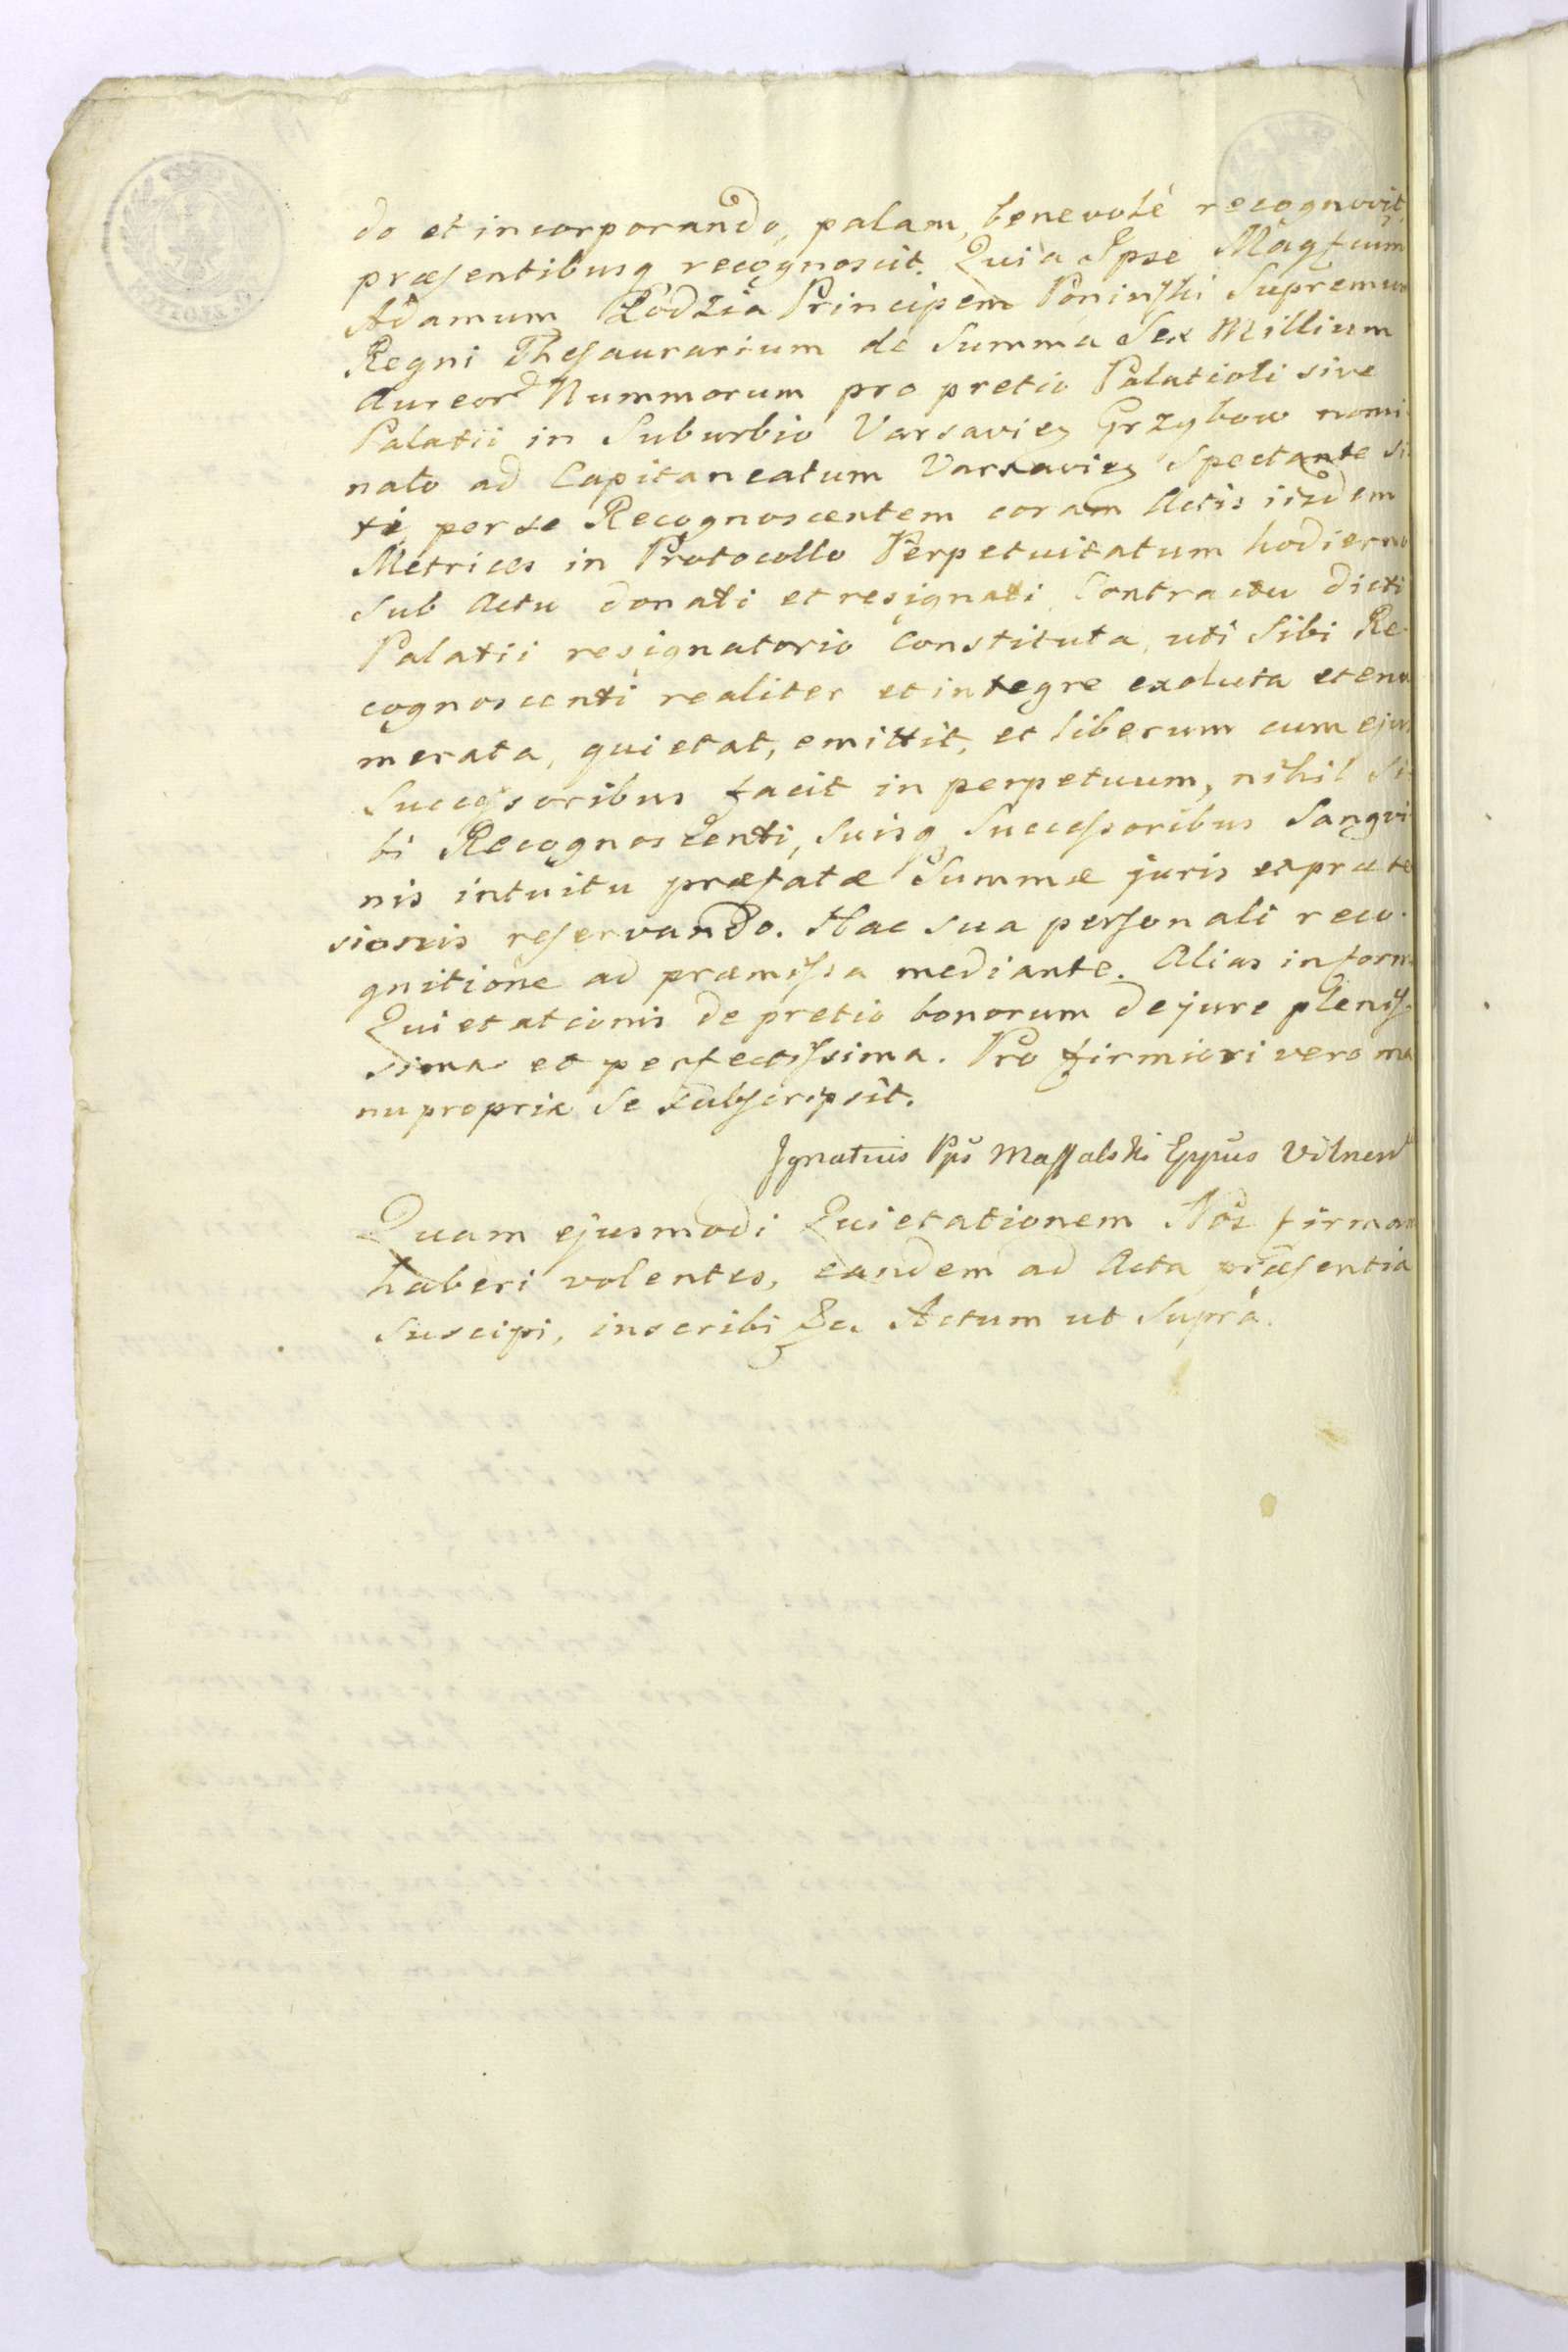 do et incorporando, palam, benevolé recognovit,
præsentibusq recognoscit. Quia Ipse Magfcum
Adamum Łodzia Principem Poninski Supremum
Regni Thesaurarium de Summa Sex Millium
Aureor Nummorum pro pretio Palatioli sive
Palatii in Suburbio Varsavieη Grzybow nomi
nato ad Capitaneatum Varsavieη Spectante si
ti, per se Recognoscentem coram Actis iisdem
Metrices in Protocollo Perpetuitatum hodierno
Sub Actu donati et resignati Contractu dicti
Palatii resignatorio Constituta, uti Sibi Re-
cognoscenti realiter et integre exoluta et enu
merata, quietat, emittit, et liberum cum ejus
Successoribus facit in perpetuum, nihil Si-
bi Recognoscenti, suisq Successoribus Sangvi
nis intuitu præfatæ Summæ juris et præte
sionis reservando. Hac sua personali reco-
gnitione ad præmissa mediante. Alias in form
Quietationis de pretio bonorum de jure plenis-
sima et perfectissima. Pro firmiori vero ma
nu propria Se subscripsit.
Ignatius Pps Massalski Eppus Vilnen
Quam ejusmodi Quietationem Nos firmam
haberi volentes, eandem ad Acta præsentia
Suscipi, inscribi &c. Actum ut Suprà.